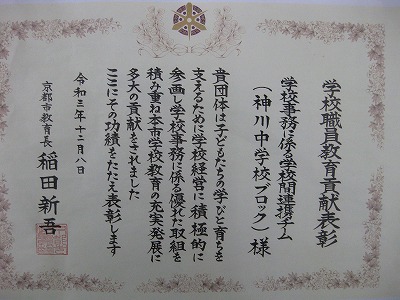 学校職員教育貢献表彰
学校事務に係る学校間連携チーム
(神川中学校ブロック)様
貴団体は子どもたちの学びと育ちを
支えるために学校経営に積極的に
参画し学校事務に係る優れた取組を
積み重ね本市学校教育の充実発展に
多大の貢献をされました
ここにその功績をたたえ表彰します
令和三年十二月八日
京都市教育長 稲田新吾